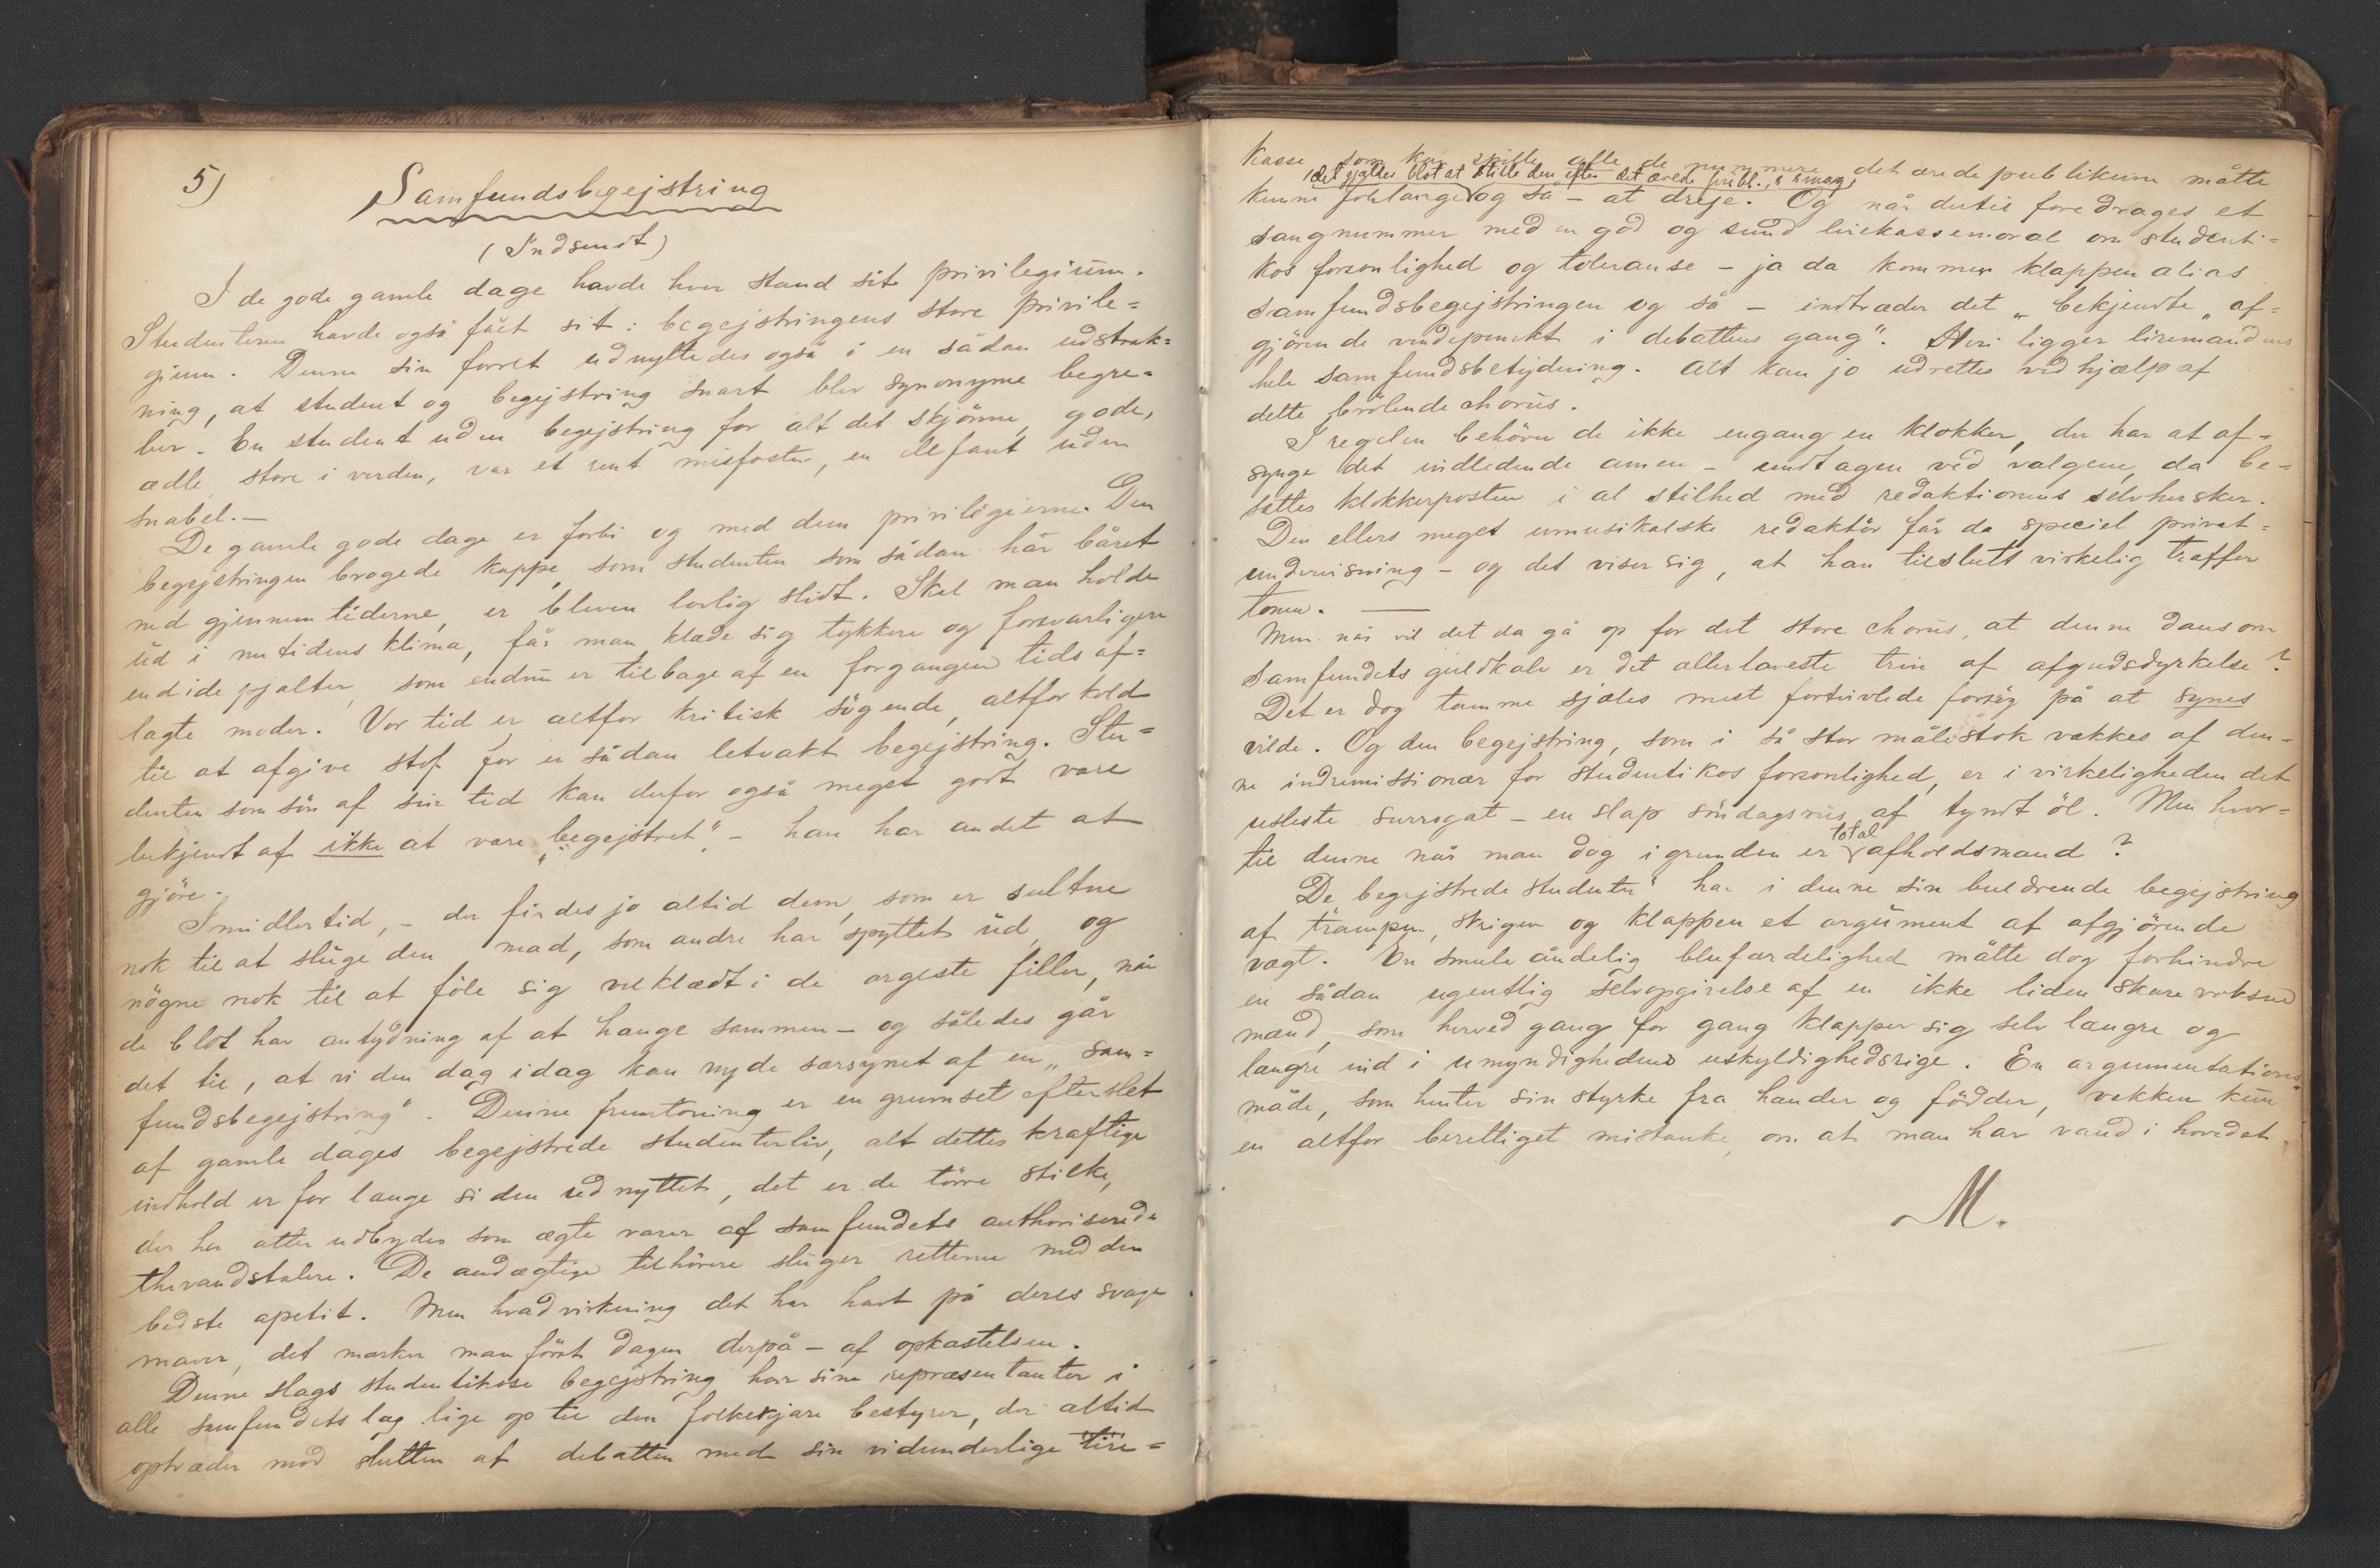 5)
Samfundsbegejstring
(Indsendt)
I de gode gamle dage havde hver stand sit privilegium.
Studenterne havde også fået sit: begejstringens store privile=
gium. Denne sin forret udnyttedes også i en sådan udstræk=
ning, at student og begejstring snart blev synonyme begre=
ber. En student uden begejstring for alt det skjönne, gode,
ædle, store i verden, var et rent misfoster, en elefant uden
snabel.—
De gamle gode dage er forbi og med dem privilegierne. Den
begejstringen brogede kappe, som studenten som sådan har båret
ned gjennem tiderne, er bleven lovlig slidt. Skal man holde
ud i nutidens klima, får man klæde sig tykkere og forsvarligere
end i de pjalter, som endnu er tilbage af en forgangen tids af=
lagte moder. Vor tid er altfor kritisk sögende, altfor kold
til at afgive stof for en sådan letvakt begejstring. Stu=
denten som sön af sin tid kan derfor også meget godt være
bekjendt af ikke at være „begejstret", – han har andet at
gjöre.
Imidlertid, – der findes jo altid dem, som er sultne
nok til at sluge den mad, som andre har spyttet ud, og
nögne nok til at föle sig velklædt i de argeste filler, når
de blot har antydning af at hænge sammen – og således går
det til, at vi den dag idag kan nyde særsynet af en „sam=
fundsbegejstring". Denne fremtoning er en grumset efterslet
af gamle dages begejstrede studenterliv, alt dettes kraftige
indhold er for længe siden udnyttet, det er de törre stilke,
der her atter udbydes som ægte varer af samfundets authoriserede
thevandstalere. De andægtige tilhörere sluger retterne med den
bedste apetit. Men hvad virkning det har havt på deres svage
maver, det mærker man fört dagen derpå – af opkastelsen.
Denne slags studentikose begejstring har sine repræsentanter i
alle samfundets lag lige op til den folkekjære bestyrer, der altid
optræder mod slutten af debatten med sin vidunderlige lire=
kasse, som kan spille alle de nummere det ærede publikum måtte
(det gjælder blot at stille den efter det ærede publ.s smag)
kunne forlange, og så – at dreje. Og når dertil foredrages et
sangnummer med en god og sund lirekassemoral om studenti=
kos forsonlighed og toleranse – ja da kommer klappen alias
samfundsbegejstringen og så – indtræder det „bekjendte „af=
gjörende vendepunkt i debattens gang". Heri ligger liremandens
hele samfundsbetydning. Alt kan jo udrettes ved hjælp af
dette brölende chorus.
I regelen behöver de ikke engang en klokker, der har at af=
synge det indledende amen – undtagen ved valgene, da be=
sættes klokkerposten i al stilhed med redaktionens selvhersker.
Den ellers meget umusikalske redaktör får da speciel privat=
undervisning – og det viser sig, at han tilslutt virkelig træffer
tonen. —
Men når vil det da gå op for det store chorus, at denne dans om
samfundets guldkalv er det allerlaveste trin af afgudsdyrkelse?
Det er dog tamme sjæles mest fortvivlede forsög på at synes
vilde. Og den begejstring, som i så stor målestok vækkes af den=
ne indremissionær for studentikos forsonlighed, er i virkeligheden det
usleste surrogat – en slap söndagsrus af tyndt öl. Men hvor=
total
til denne når man dog i grunden er afholdsmand?
De begejstrede studenter" har i denne sin buldrende begejstring
af trampen, skrigen og klappen et argument af afgjörende
vægt. En smule åndelig blufærdelighed måtte dog forhindre
en sådan egentlig selvopgivelse af en ikke liden skare voksne
mænd, som herved gang for gang klapper sig selv længre og
længre ind i umyndighedens uskyldighedsrige. En argumentations=
måde, som henter sin styrke fra hænder og födder, vækker kun
en altfor berettiget mistanke om at man har vand i hovedet.
M.